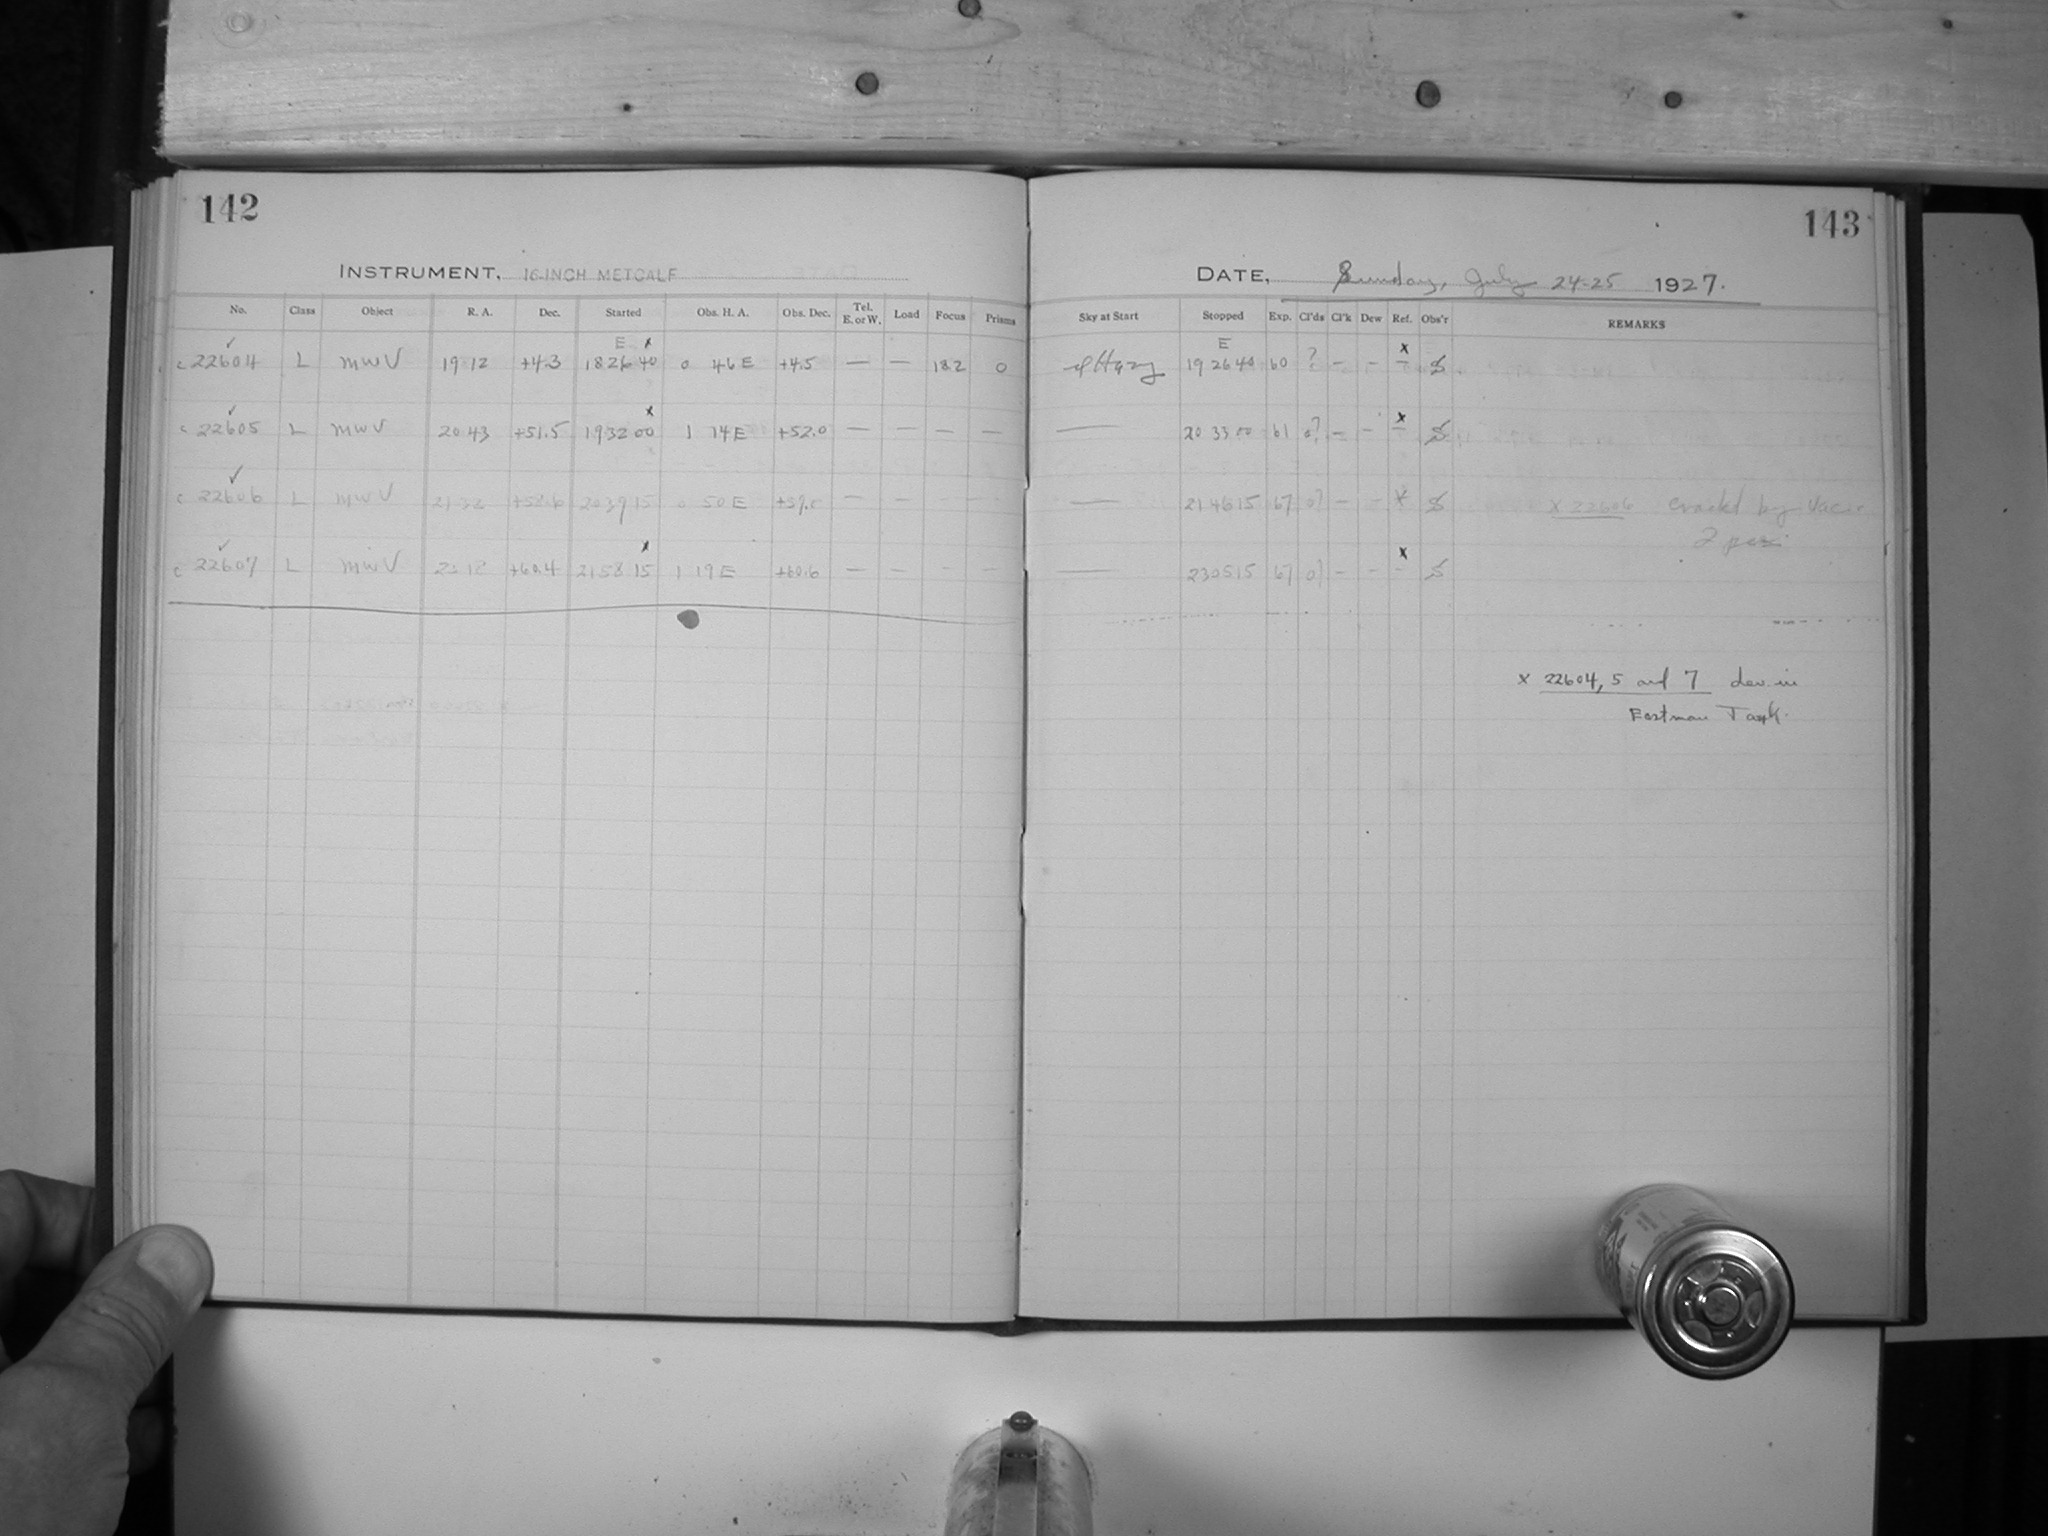 142
INSTRUMENT, 16-INCH METCALF
No. Class Object R. A. Dec. Started Obs. H. A. Obs. Dec. Tel. E. or W. Load Focus Prisms
E x
c 22604 L MWV 19 12 +4.3 18 26 40 0 46 E +4.5 — — 182 0
x
c 22605 L MWV 20 43 +51.5 19 32 00 1 14 E +52.0 — — — —
c 22606 L MWV 20 39 15 0 50 E — — — —
x
c 22607 L MWV +60.4 21 58 15 1 19 E +60.6 — — — —
143
DATE, Sunday, July 24-25 1927.
Sky at Start Stopped Exp. Cl'ds Cl'k Dew Ref. Obs'r REMARKS
E x
Hazy 19 26 40 60 ? — — —
x
— 20 33 00 61 0? — — —
— 21 46 15 67 0? — — x x 22606 cracked by
2
x
— 23 05 15 67 0? — — —
x 22604, 5 and 7 dev. in
Eastman Tank.